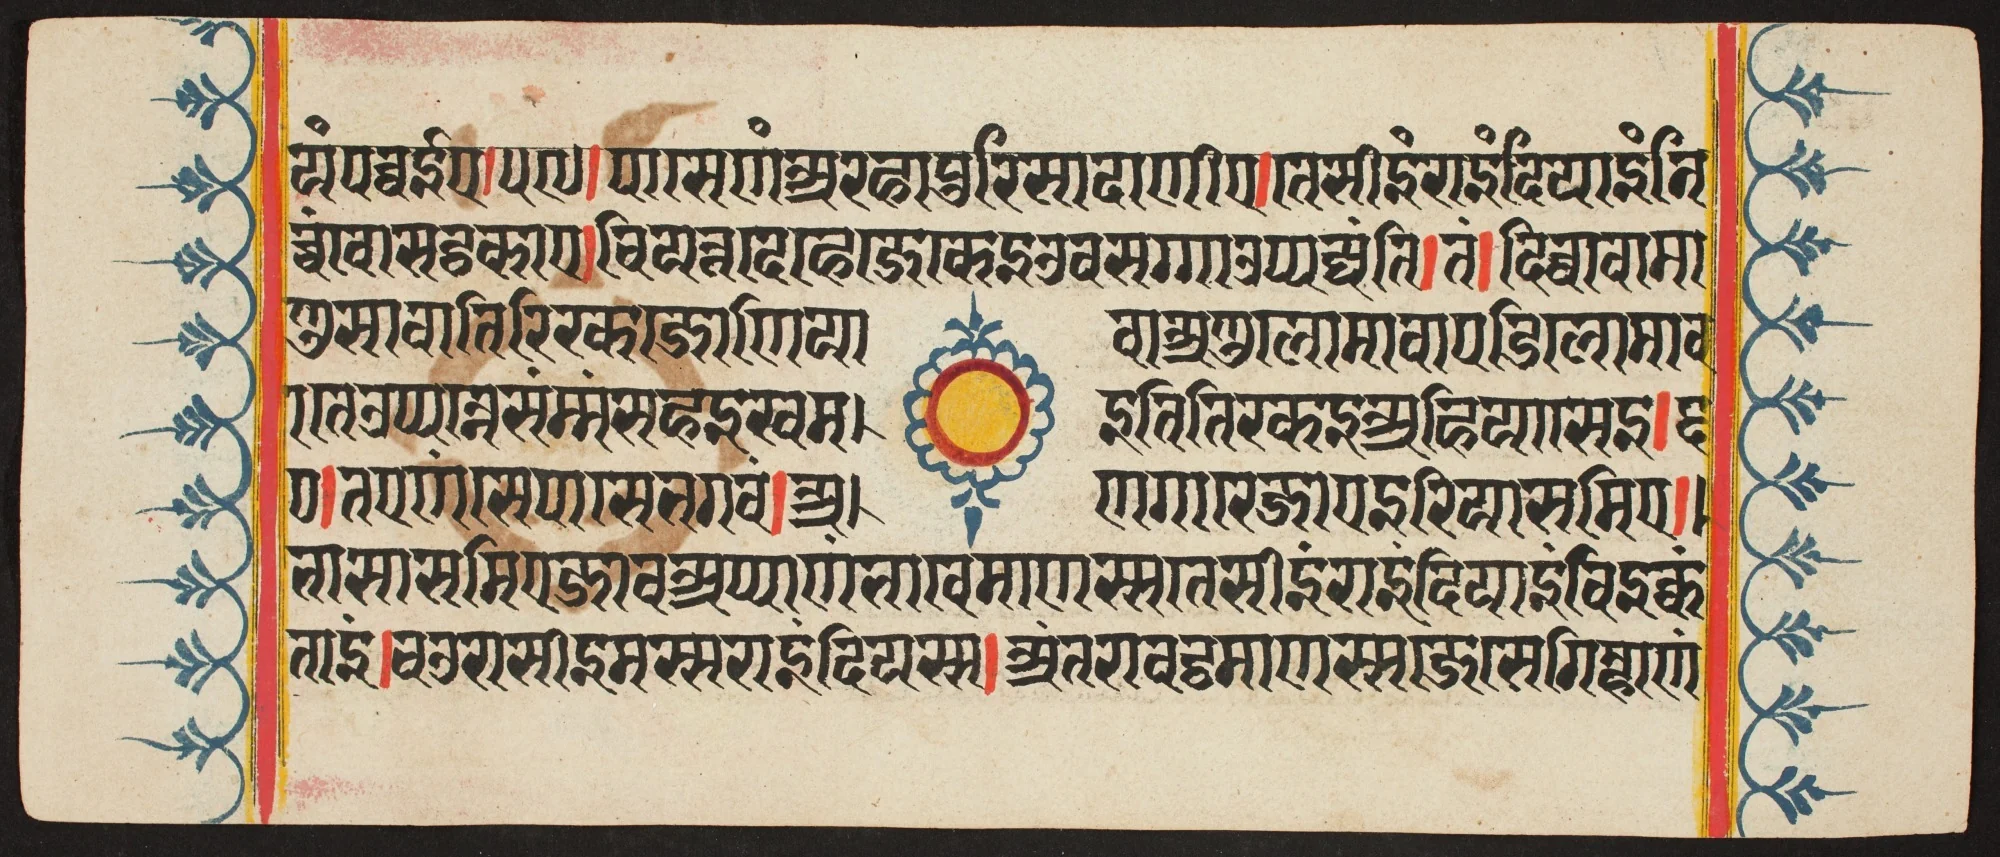 यं पव्वईए।१५७। पासे णं अरहा पुरिसादाणीए। तेसीइं राइंदियाइं नि
च्चं वोसट्ठकाए। चियत्तदेहे जे केइ उवसग्गा उप्पज्जंति। तं। दिव्वा वा मा
णुसा वा तिरिक्खजोणिया वा अणुलोमा वा पडिलोमा वा
ते उप्पन्ने संम्मं सहइ खमइ तितिक्खइ अहियासेइ। छ
ए। तए णं से पासे भगवं। अणगारे जाए इरियासमिए।
भासासमिए जाव अप्पाणं भावेमाणस्स तेसीइं राइंदियाइं विइक्कं
ताइं। चउरासीइमस्स राइंदियस्स। अंतरा वट्टमाणस्स जे से गिम्हाणं